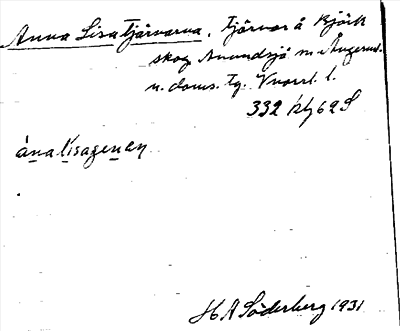 Anna Lisa Tjärvarna. Tjärvar å Björk
skog Anundsjö sn Ångerml.
n. doms. tg. Vnorrl. l.
332 kly 62 S
ánalisagenen
H A Söderberg 1931